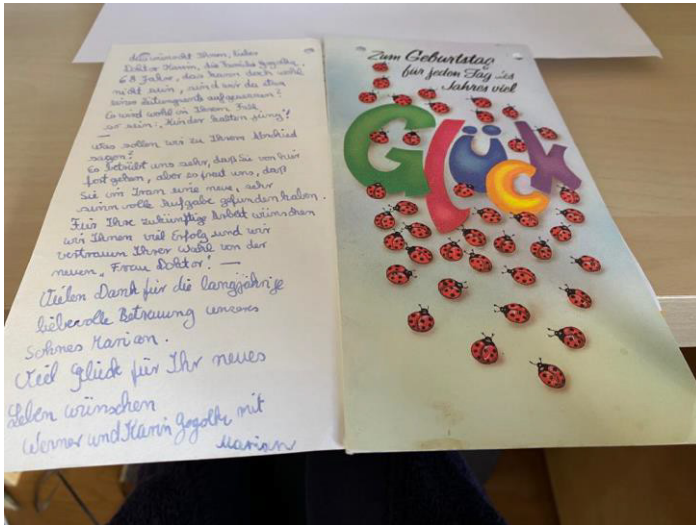 das wünscht Ihnen, lieber
Doktor Karim, die Familie Gogolke,
68 Jahre, das kann doch wohl
nicht sein, sind wir da etwa
einer Zeitungsente aufgesessen?
Es wird wohl in Ihrem Fall
so sein: „Kinder halten jung"!
—
Was sollen wir zu Ihrem Abschied
sagen?
Es betrübt uns sehr, daß Sie von hier
fort gehen, aber so freut uns, daß
Sie im Iran eine neue, sehr
sinnvolle Aufgabe gefunden haben.
Für Ihre zukünftige Arbeit wünschen
wir Ihnen viel Erfolg und wir
vertrauen Ihrer Wahl von der
neuen „Frau Doktor"! —
Vielen Dank für die langjährige
liebevolle Betreuung unseres
Sohnes Marian.
Viel Glück für Ihr neues
Leben wünschen
Werner und Karin Gogolke mit
Marian
Zum Geburtstag
für jeden Tag des
Jahres viel
Glück